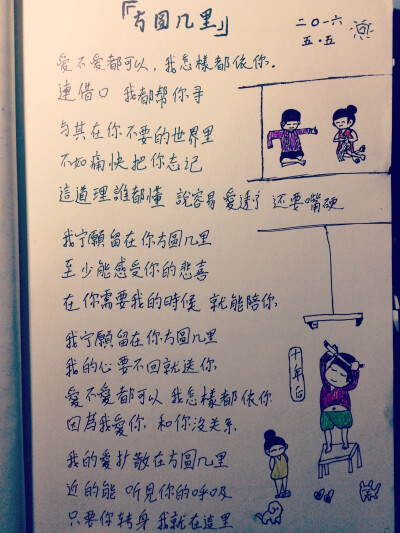 「方圆几里」
二〇一六
五·五
爱不爱都可以，我怎樣都依你.
連借口 我都帮你寻
与其在你不要的世界里
不如痛快把你忘记
這道理誰都懂 說容易 爱透了 还要嘴硬
我宁願留在你方圆几里
至少能感受你的悲喜
在你需要我的時候 就能陪你
我宁願留在你方圆几里
我的心要不回就送你
爱不爱都可以 我怎樣都依你
因為我爱你 和你没关系
十年后
我的爱扩散在方圆几里
近的能 听见你的呼吸
只要你转身 我就在這里